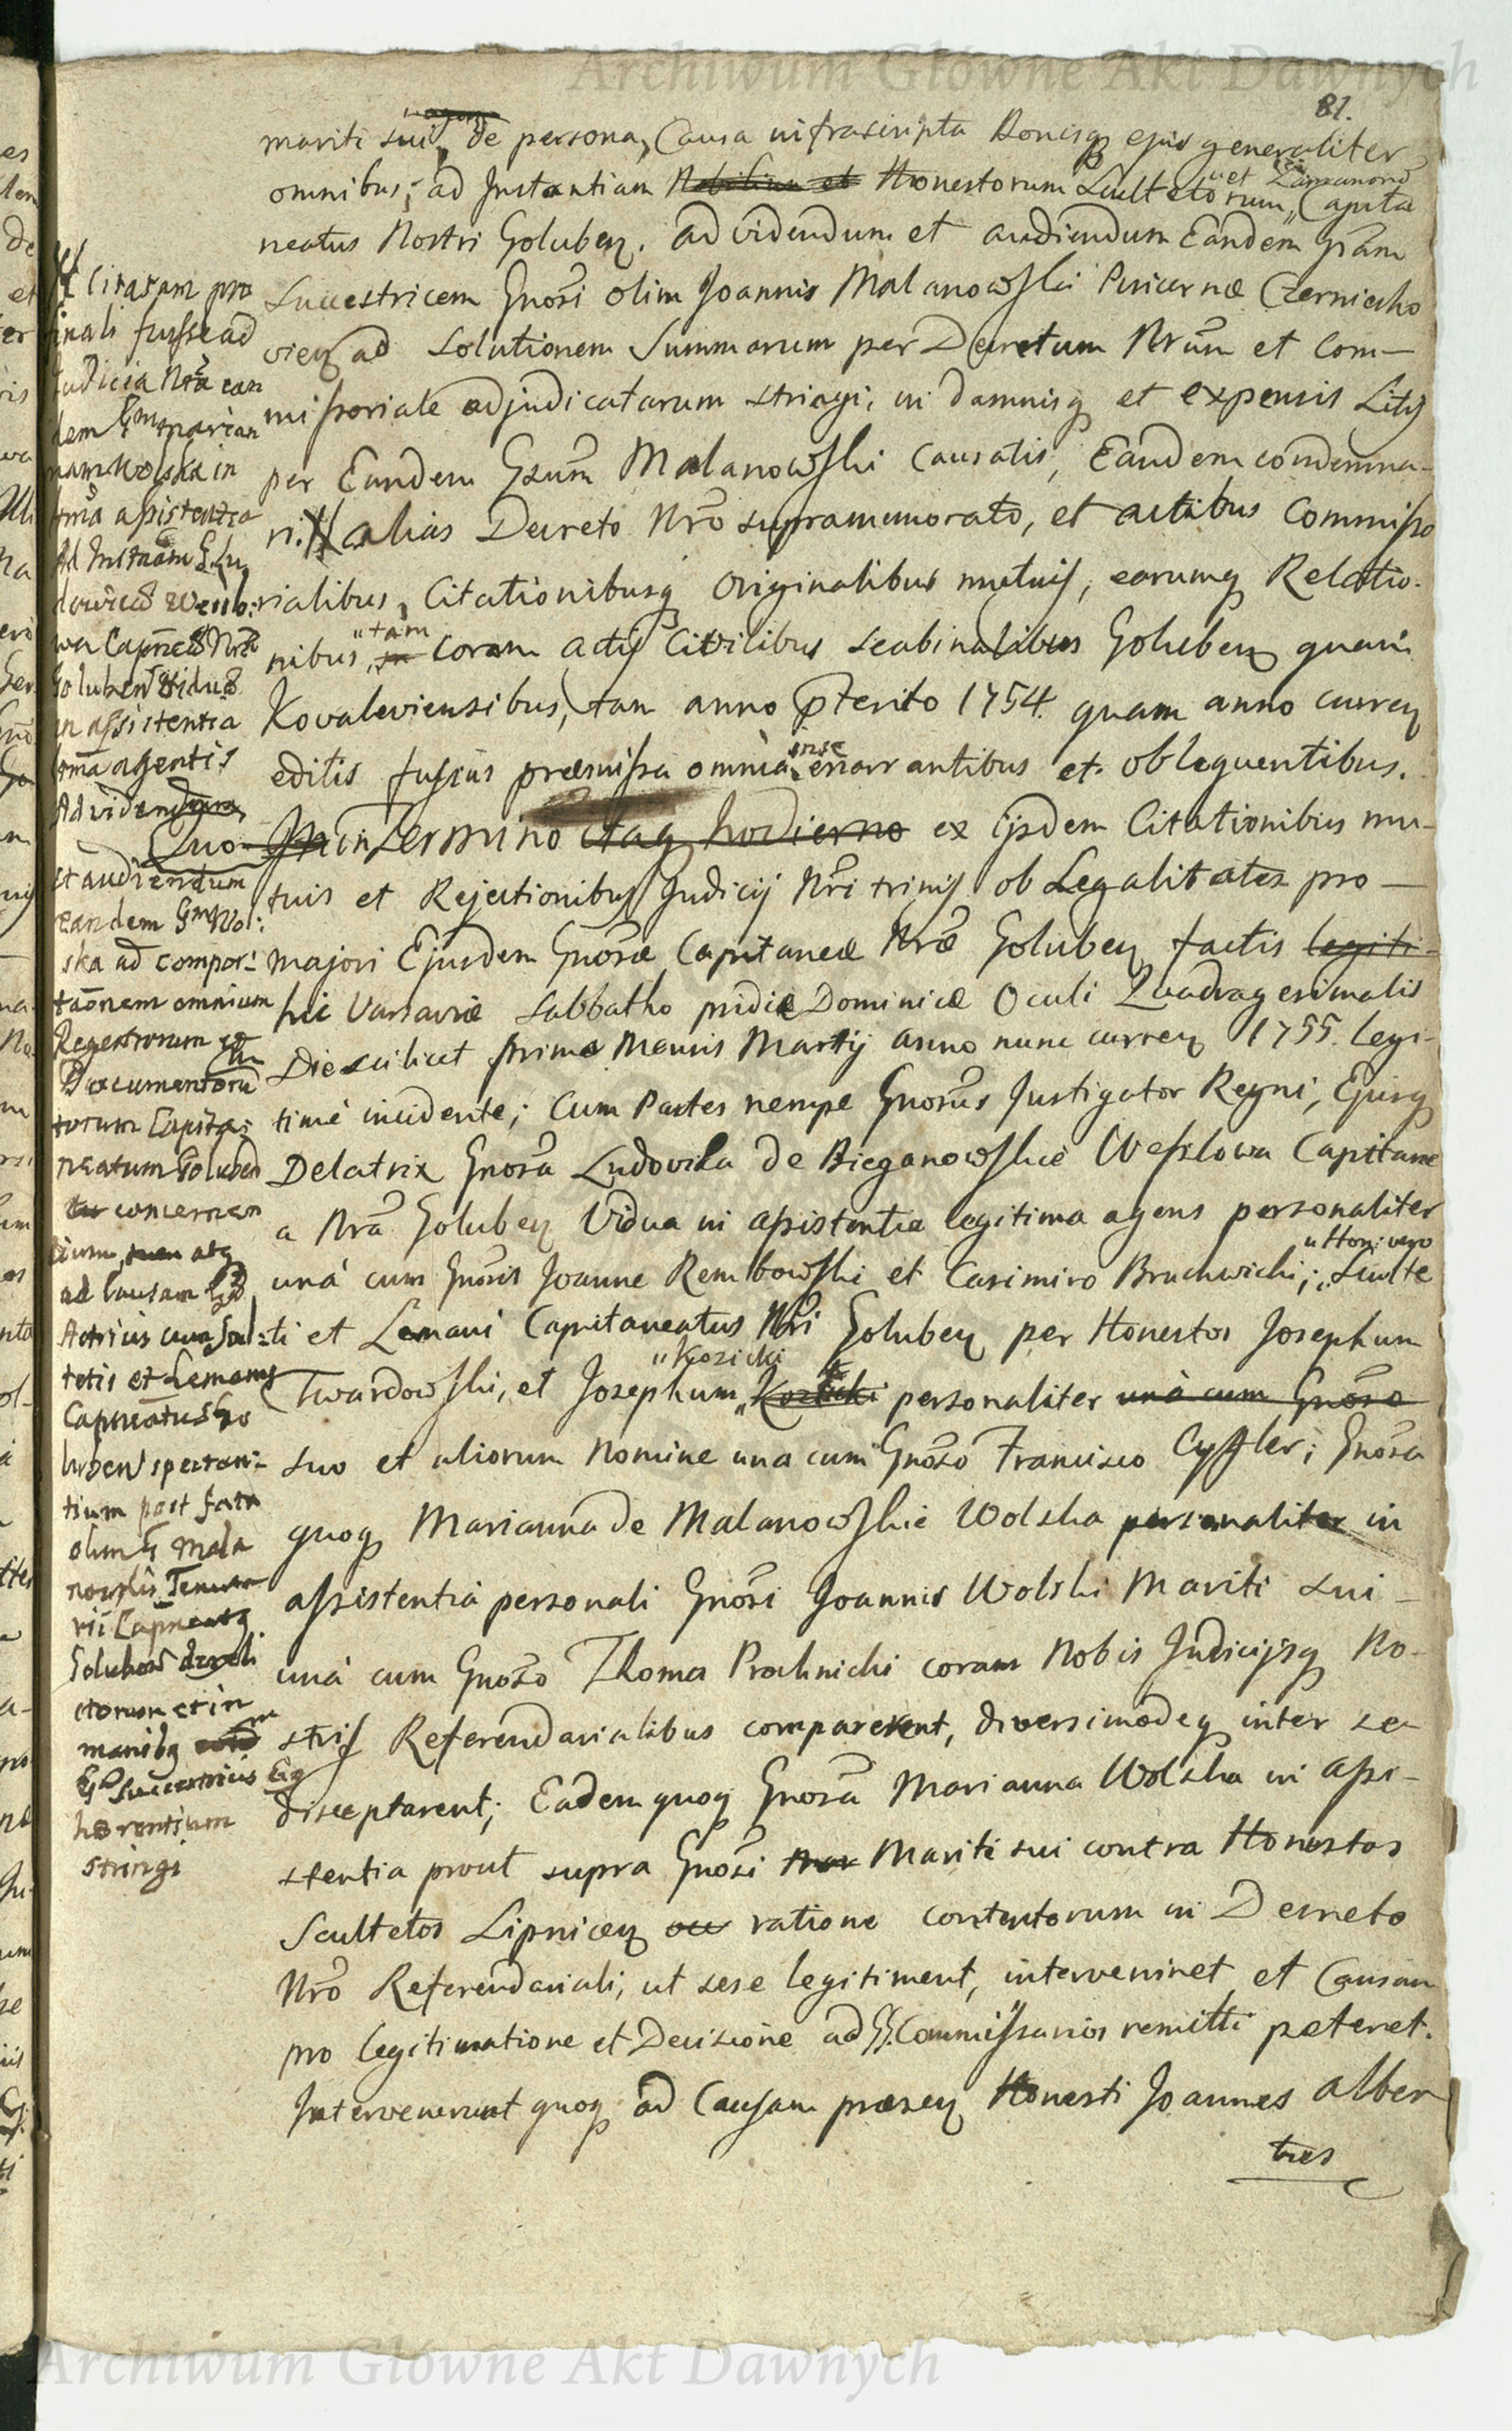 Archiwum Główne Akt Dawnych
81.
mariti sui, de persona, Causa infrascripta Bonisq ejus generaliter
omnibus; ad Instantiam Nobilium et Honestorum Scultetorum, "et Lemanorũ Capita
neatus Nostri Goluben. ad videndum et audiendum Eandem Gsam
Succestricem Gnosi olim Joannis Malanowski Pincernæ Czerniecho
vien ad solutionem Summarum per Decretum Nrum et Com—
missoriale adjudicatarum stringi; in damnisq et expensis Litis
per Eundem Gsum Malanowski Causatis, Eandem condemna-
ri. alias Decreto Nro supramemorato, et actibus Commisso
rialibus, Citationibusq Originalibus mutuis, earumq Relatio-
nibus "tam coram actis Civilibus Scabinalibus Goluben quam
Kovaleviensibus, tam anno pterito 1754. quam anno curren
editis fusius præmissa omnia in se enarrantibus et obloquentibus.
Quo In in Termino itaq hodierno ex Ijsdem Citationibus mu-
tuis et Rejectionibus Judicij Nri trinis ob Legalitates pro—
majori Ejusdem Gnosæ Capitaneæ Nræ Goluben factis legiti-
hic Varsaviæ Sabbatho pridie Dominicæ Oculi Quadragesimalis
Die scilicet prima Mensis Martij anno nunc curren 1755. legi-
time incidente; Cum Partes nempe Gnosus Instigator Regni, Ejusq
Delatrix Gnosa Ludovika de Bieganowskie Wesslowa Capitane
a Nra Goluben Vidua in assistentia legitima agens personaliter
unà cum Gnosis Joanne Rembowski et Casimiro Bruchwicki; "Hon: vero Sculte
ti et Lemani Capitaneatus Nri Goluben per Honestos Josephum
Twardowski, et Josephum "Kozicki personaliter unà cum Gnoso
suo et aliorum Nomine una cum Gnoso Francisco Cyffler; Gnosa
quoq Marianna de Malanowskie Wolska personaliter in
assistentia personali Gnosi Joannis Wolski Mariti sui—
unà cum Gnoso Thoma Prochnicki coram Nobis Judicijsq No-
stris Referendarialibus comparerent, diversimodeq inter se
disceptarent; Eadem quoq Gnosa Marianna Wolska in assi-
stentia prout supra Gnosi Mariti sui contra Honestos
Scultetos Lipnicen ratione contentorum in Decreto
Nro Referendariali, ut sese legitiment, interveniret et Causam
pro legitimatione et Decisione ad GG. Commissarios remitti peteret.
Intervenerunt quoq ad Causam præsen Honesti Joannes Alber
tres
Citatam pro
inali fuisse ad
Judicia Nra ean
dem Gm Marian
nam Wolska in
tma assistentia
Ad Instnam G Lu
dovicæ Wessl:
wa Capneæ Nræ
Goluben Viduæ
in assistentia
ltma agentis
Ad videndum
et audiendum
eandem Gm Wol:
ska ad compor:
taonem omnium
Regestrorum et
Documentorũ
totum Capita:
neatum Goluben
concernen
tium, atq
ad Causam
Actricis cum Scul:
tetis et Lemanis
Capneatus Go
luben spectan:
tium post fata
olim G Mala
nowski Tenuta
rii Capneatq
Goluben
ctorum et in
manibq
Gæ Succestricis Eiq
hærentium
stringi
Archiwum Główne Akt Dawnych